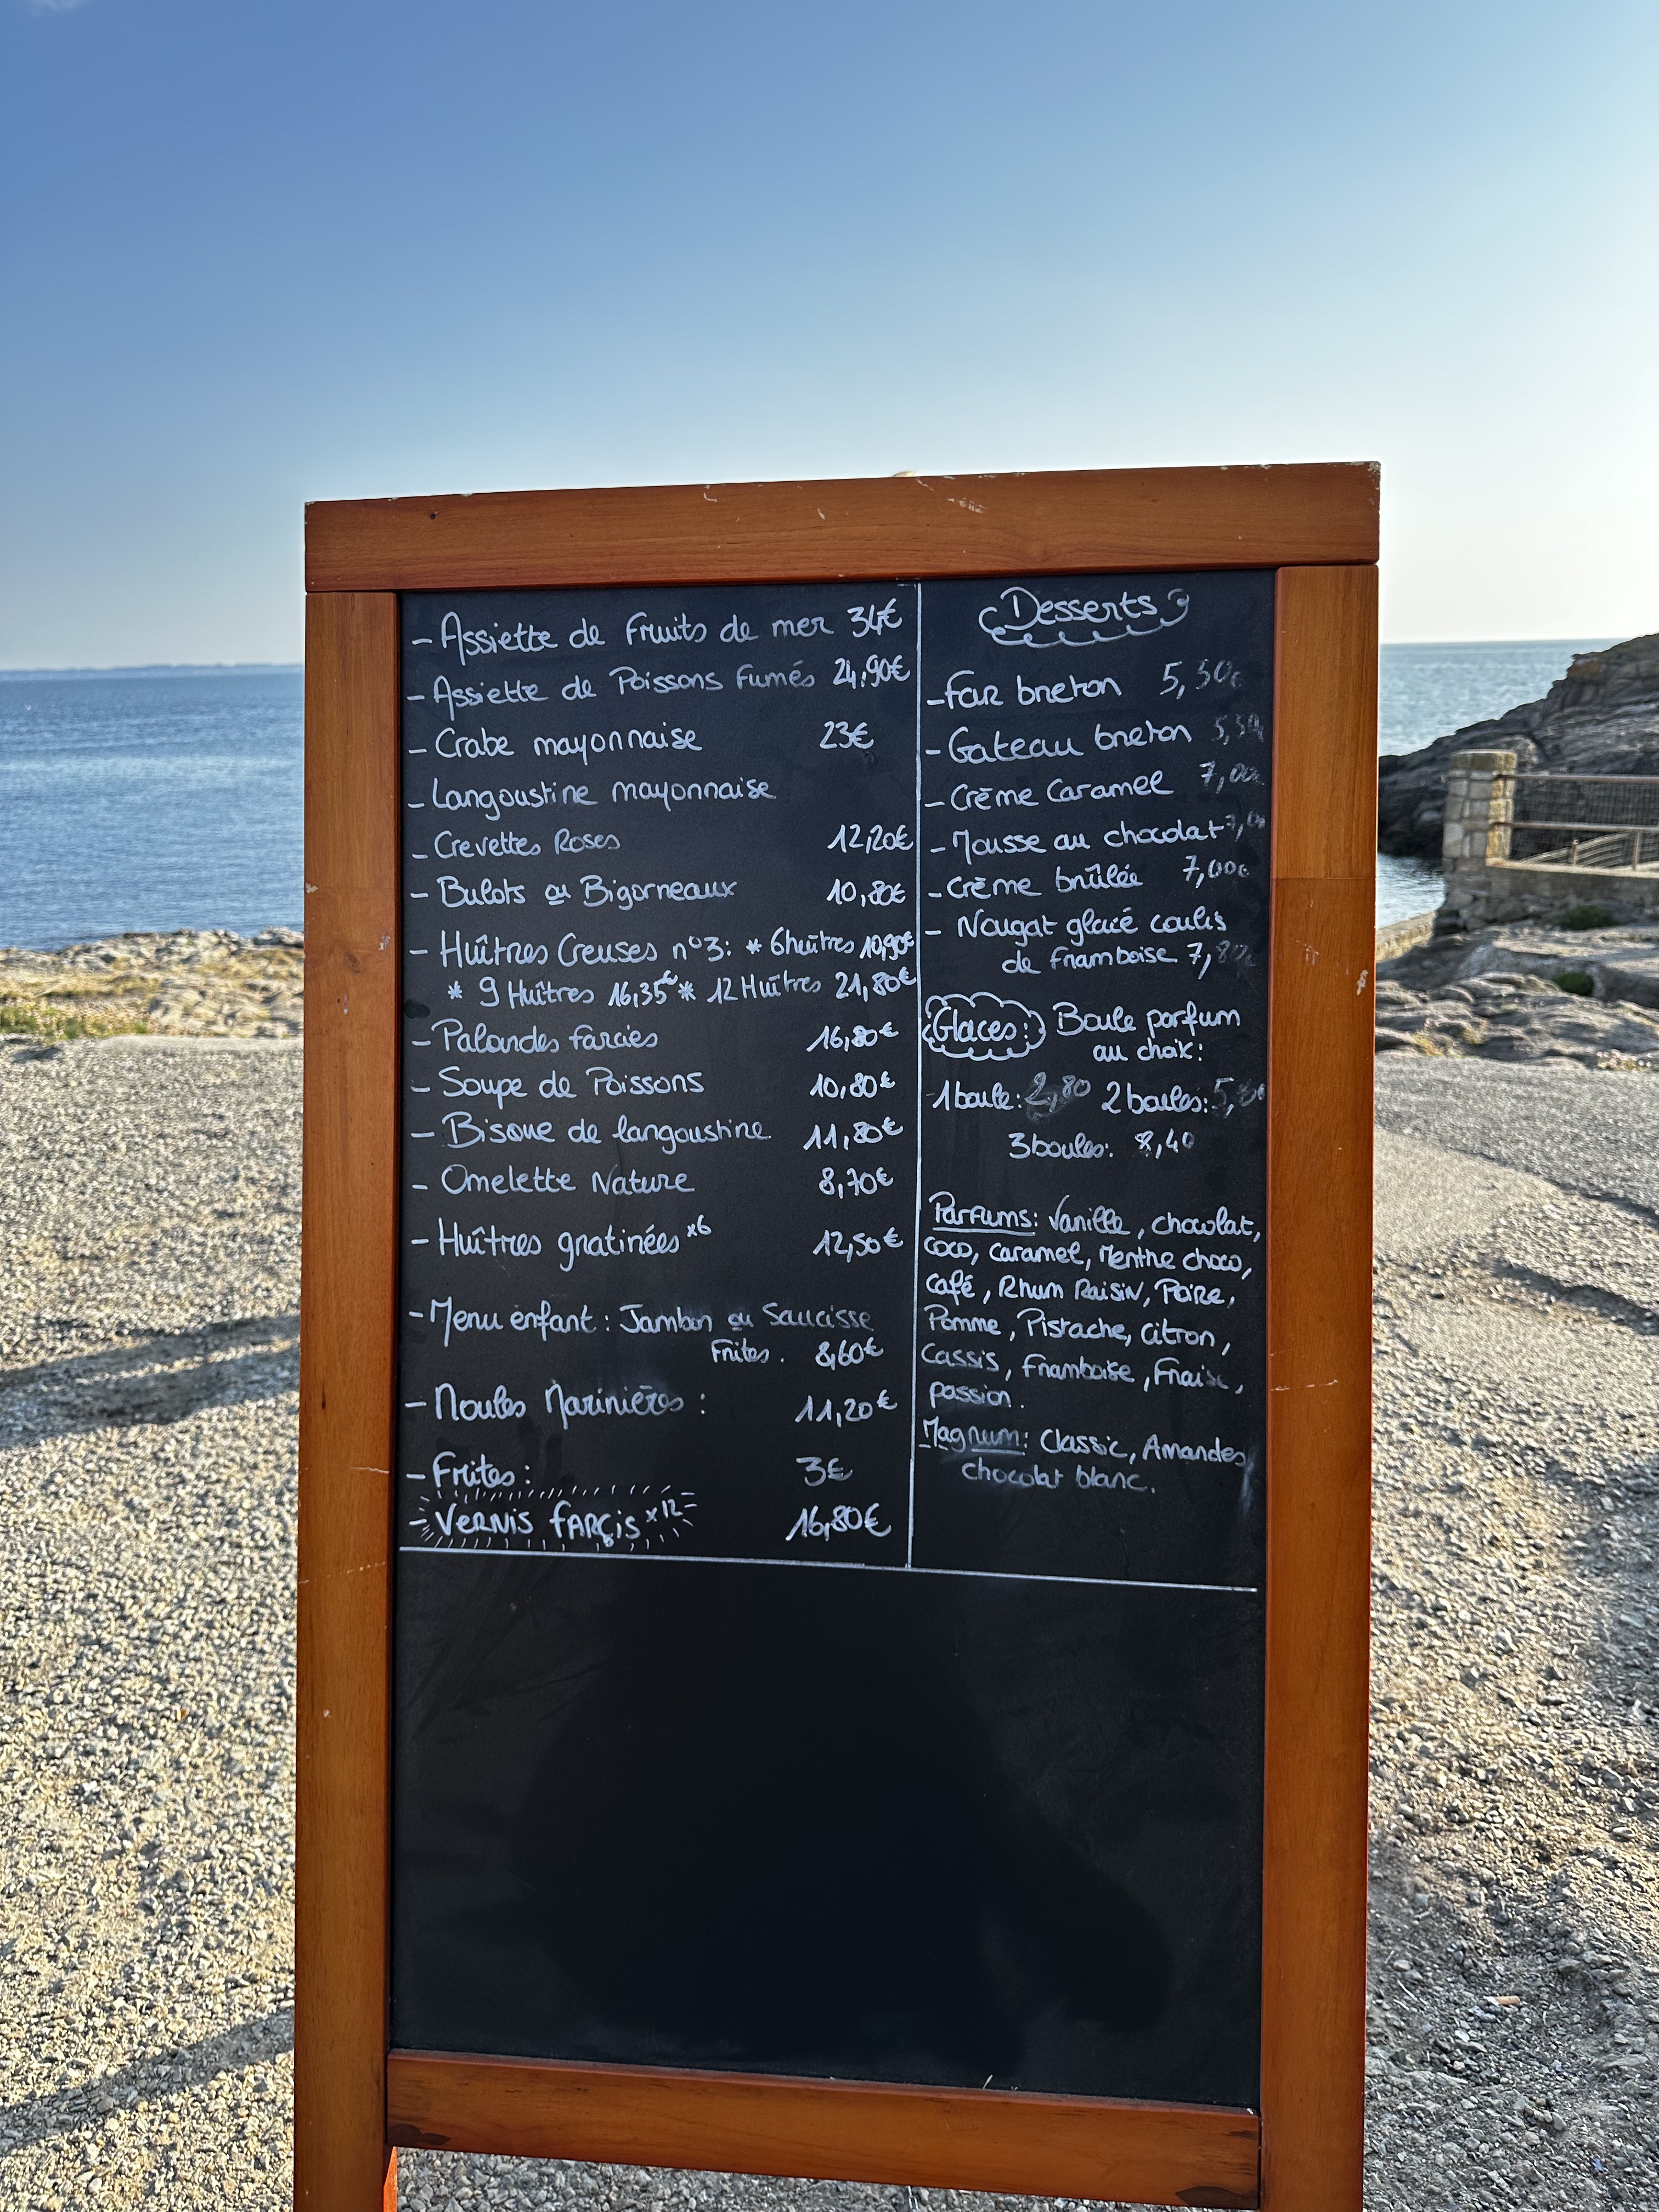 - Assiette de Fruits de mer 34€
- Assiette de Poissons Fumés 24,90€
- Crabe mayonnaise 23€
- Langoustine mayonnaise
- Crevettes Roses 12,20€
- Bulots ou Bigorneaux 10,80€
- Huîtres Creuses n°3: * 6 huîtres 10,90€
* 9 Huîtres 16,35€ * 12 Huîtres 21,80€
- Palourdes farcies 16,80€
- Soupe de Poissons 10,80€
- Bisque de langoustine 11,80€
- Omelette Nature 8,70€
- Huîtres gratinées x6 12,50€
- Menu enfant : Jambon ou Saucisse
Frites. 8,60€
- Moules Marinières : 11,20€
- Frites : 3€
- VERNIS FARÇIS x12 16,80€
Desserts
- Far breton 5,50€
- Gateau breton 5,50
- Crème Caramel 7,00
- Mousse au chocolat
- Crème brûlée 7,00€
- Nougat glacé coulis
de framboise 7,80
Glaces: Boule parfum
au choix:
1 boule: 2,80 2 boules:
3 boules: 8,40
Parfums: Vanille, chocolat,
coco, caramel, Menthe choco,
café, Rhum Raisin, Poire,
Pomme, Pistache, citron,
Cassis, Framboise, Fraise,
passion.
Magnum: Classic, Amandes
chocolat blanc.